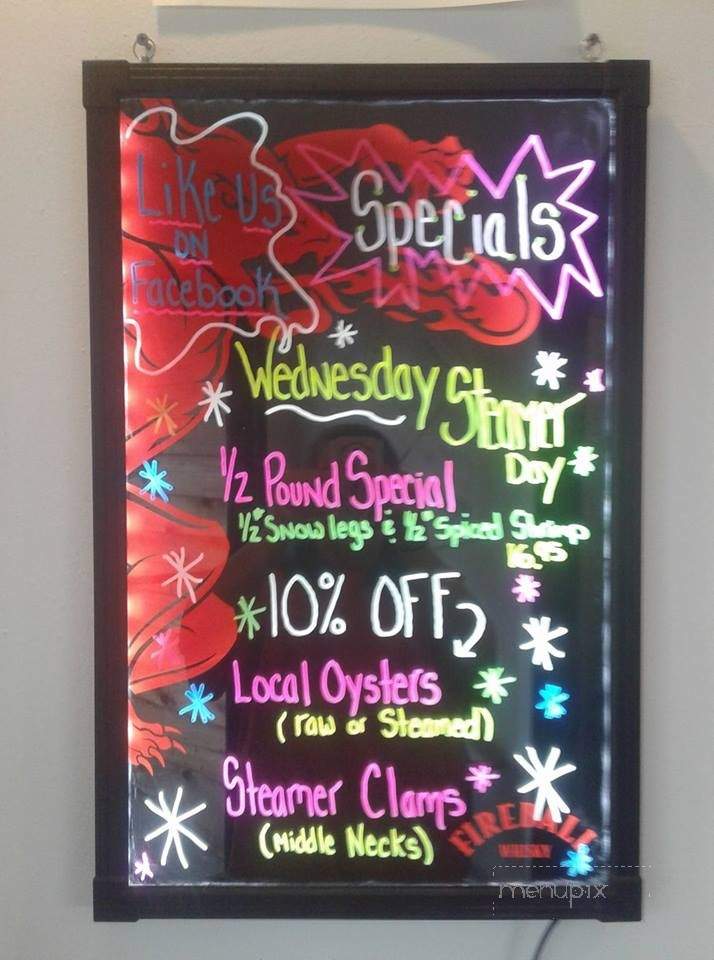 Like Us
ON
Facebook
Specials
Wednesday Steamer
Day
1/2 Pound Special
1/2# Snow legs & 1/2# Spiced Shrimp
16.95
10% OFF
Local Oysters
(raw or Steamed)
Steamer Clams
(Middle Necks)
FIREBALL
WHISKY
menupix